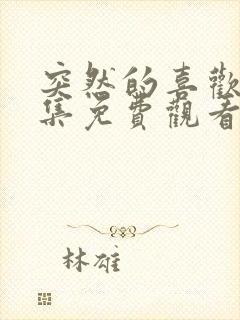 突然的喜歡
集免費觀看
林雄